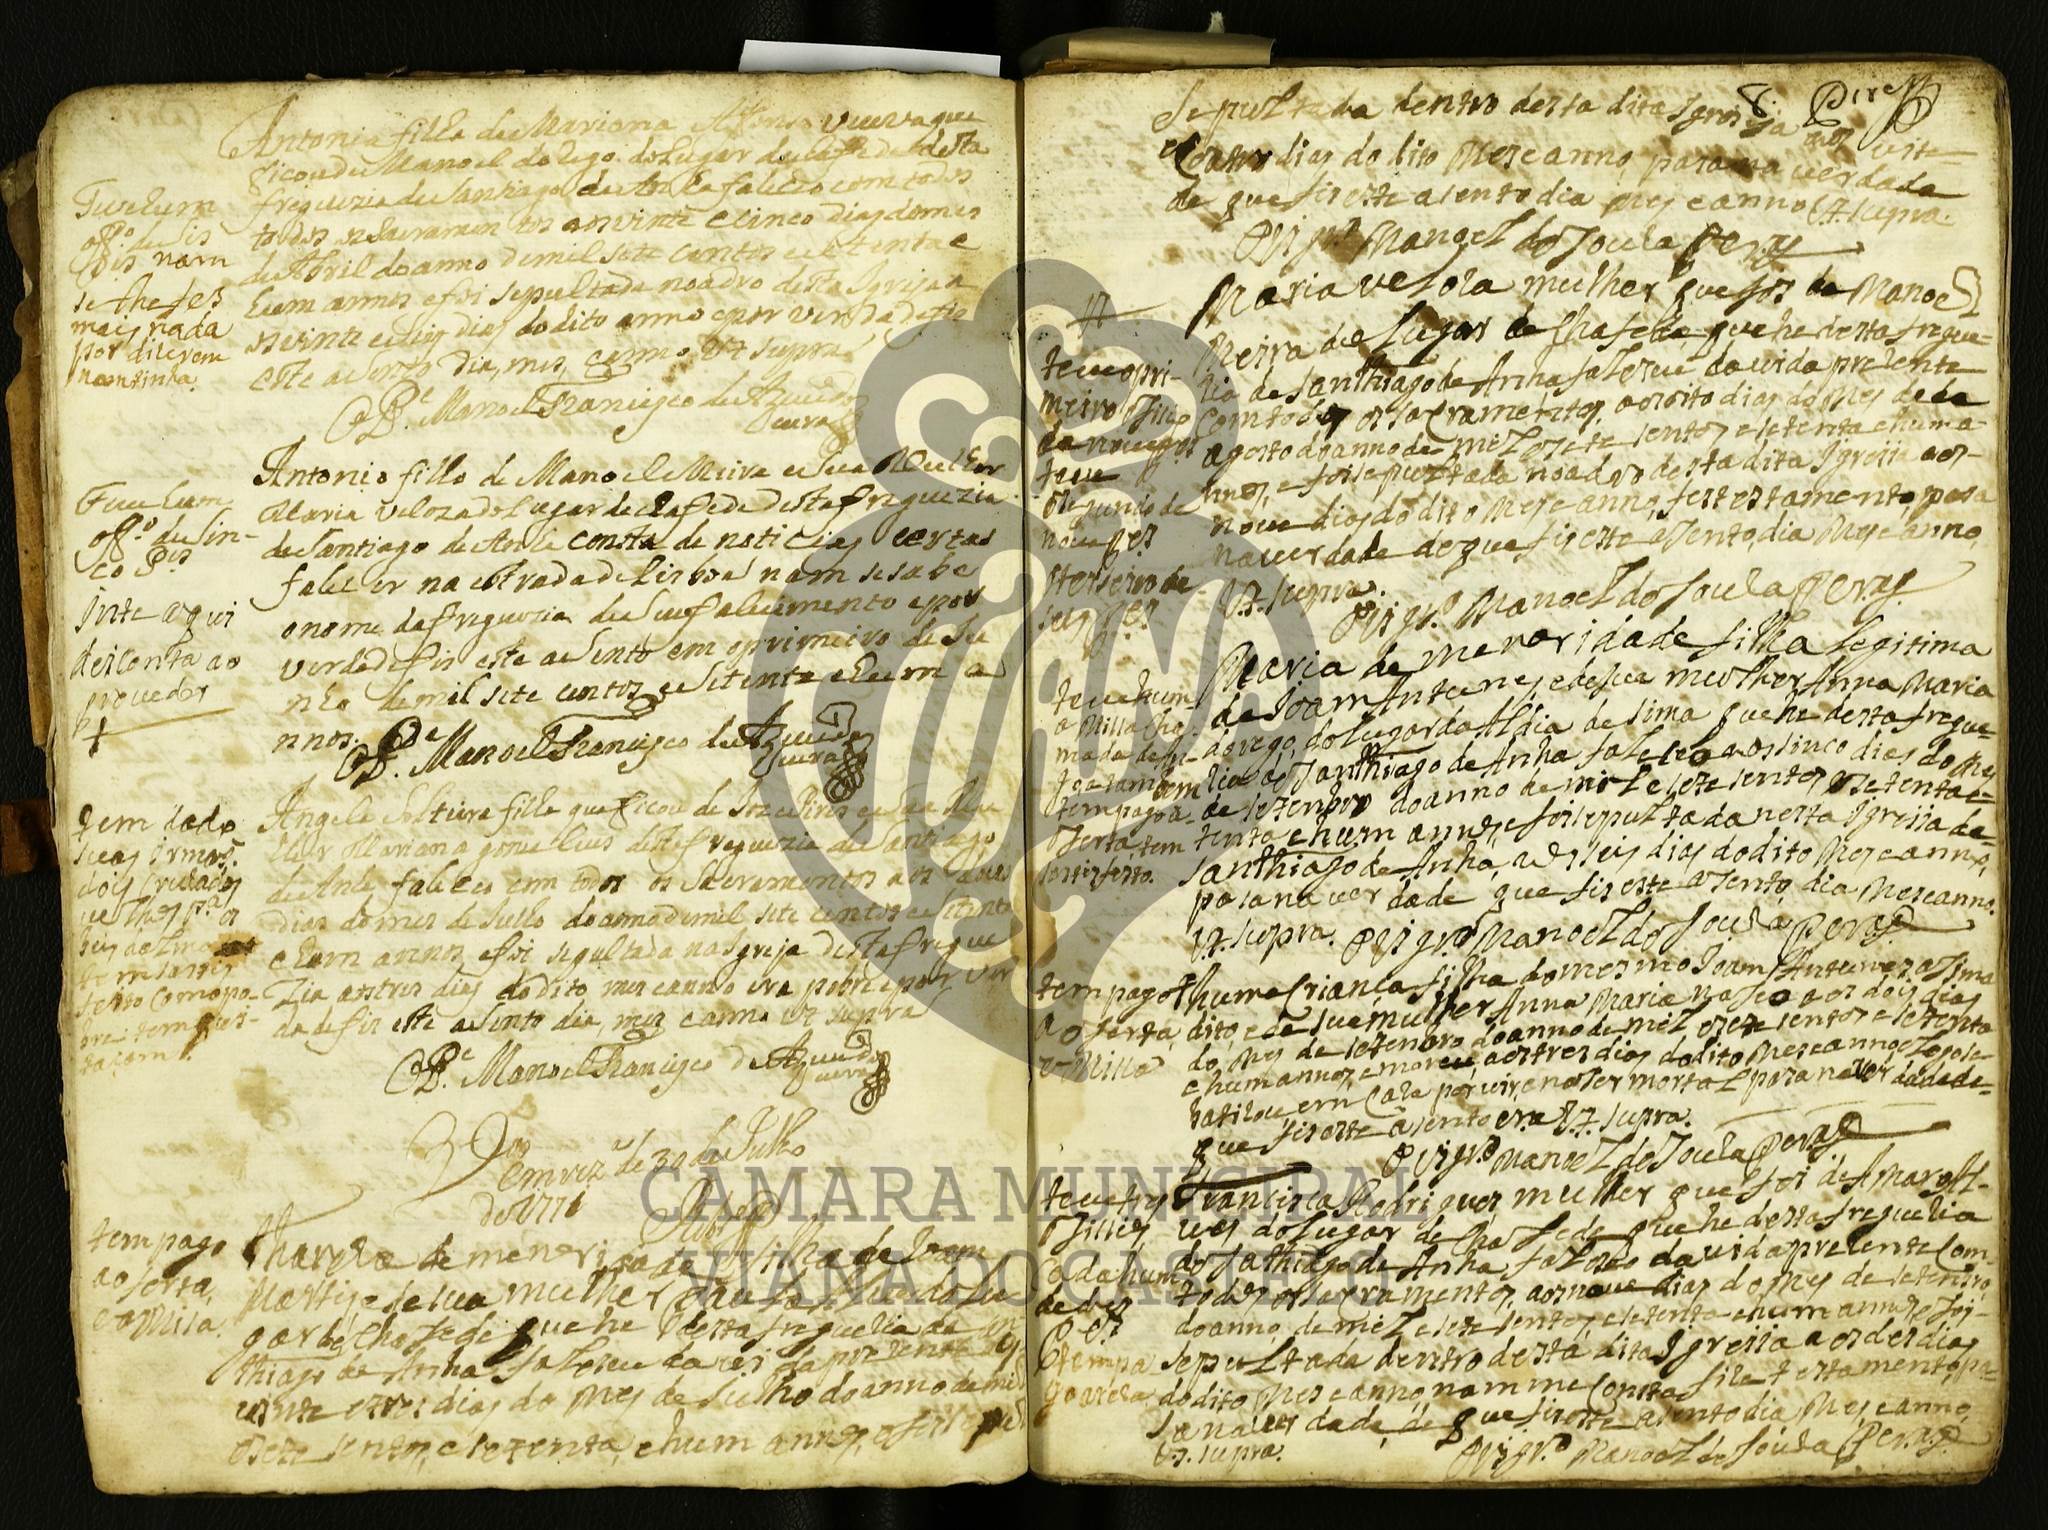 Antonia filha de Mariana Affonsa veuva que
ficou de Manoel do Rego do lugar de Chafede desta
freguezia de Santiago de Anha faleceo com todos
todos os Sacramentos aos vinte e cinco dias do mes
de Abril do anno de mil sete centos e setenta e
hum annos e foi sepultada no adro desta Igreja a
os vinte e seis dias do dito anno e por verdade fis
este asento dia, mes, e anno Ut supra
O P.e Manoel Francisco de Azevedo
Teve hum
off.o de
nam
se lhe fes
mais nada
por dizerem
nam tinha.
Antonio filho de Manoel Meira e sua Mulher
Maria veloza do lugar de Chafede desta freguezia
de Santiago de Anha consta de noticias certas
falecer na estrada de Lisboa nam se sabe
o nome da freguezia de seu falecimento e por
verdade fis este asento em o primeiro de Ju
nho de mil sete centos e setenta e hum a
nnos. O P.e Manoel Francisco de Azevedo
Teve hum
off.o de sin-
co P.es
Inte aqui
desconta ao
provedor
Angela Solteira filha que ficou de Joze Pires e sua Mu
lher Mariana gonçalves desta freguezia de Santiago
de Anha faleceo com todos os Sacramentos aos dous
dias do mes de Julho do anno de mil sete centos e setenta
e hum annos e foi sepultada na Igreja desta fregue
zia aos tres dias do dito mes e anno era pobre e por ver
dade fis este asento dia, mes e anno ut supra
O P.e Manoel Francisco de Azevedo
tem dado
suas irmas
dois cruzados
tem satis
feito como po-
bre
V.do
em vez.a de 30 de Julho
de 1771
tem pago
a oferta,
e a Missa.
Thareza de menor idade filha de Joam
Martis e de sua mulher
gar de Chafede que he desta freguezia de San
thiago de Anha faleseu da vida prezente aos
vinte e tres dias do mes de Julho do anno de mil
e sete sentos, e setenta, e hum annos, e foi sepul
8. Pires
Sepultada dentro desta dita Igreija aos vinte
e coatro dias do dito Mes e anno, para na verda
de que fis este asento dia mes e anno Ut supra.
O Vigr.o Manoel de Souza Peres
Maria veloza mulher que foi de Manoel
Meira do Lugar de Chafede que he desta fregue-
zia de Santhiago de Anha faleseu da vida prezente
com todos os sacramentos, aos oito dias do mes de
agosto do anno de mil e sete sentos e setenta e hum a
nnos, e foi sepultada no adro desta dita Igreija aos
nove dias do dito mes e anno, fes testamento, para
na verdade de que fis este asento, dia mes e anno,
Ut supra. O Vigr.o Manoel de Souza Peres
teve o pri-
meiro officio
de nove p.es
teve
o segundo de
nove p.es
terseiro de
seis p.es
Maria de menor idade filha legitima
de Joam Antunes, e de sua mulher Anna Maria
do rego, do lugar da Aldia de sima que he desta fregue-
zia de Santhiago de Anha faleceo aos sinco dias do mes
de setenbro do anno de mil e sete sentos e setenta e
tenta e hum annos, e foi sepultada nesta Igreija de
Santhiago de Anha, aos seis dias do dito mes e anno,
para na verdade que fis este asento, dia mes e anno.
Ut supra. O Vigr.o Manoel de Souza Peres
teve hum
a Missa cha-
mada de
tem
tem pago a
oferta, tem
satisfeito.
huma crianca filha do mesmo Joam Antunes asima
dito, e de sua mulher Anna Maria naseo aos dois dias
do mes de setenbro do anno de mil e sete sentos e setenta
e hum annos, e moreu, aos tres dias do dito mes e anno e logo se
batizou em caza por vir e nascer mortal para na verdade de
que fis este asento era Ut supra.
O Vigr.o Manoel de Souza Peres
tem pago
a oferta,
e Missa
Francisca Rodrigues mulher que foi de Amaro Al-
ves do Lugar de Chafede que he desta freguezia
de Sathiago de Anha faleseo da vida prezente com
todos os sacramentos, aos nove dias do mes de setenbro,
do anno de mil e sete sentos e setenta e hum annos, e foi
sepultada dentro desta dita Igreija aos des dias
do dito mes e anno, nam me consta fize testamento, pa-
ra na verdade, de que fis este asento dia mes e anno,
Ut supra. O Vigr.o Manoel de Souza Peres
teve tres
officios
cada hum
de des
P.es
tem pa
go a reza
CAMARA MUNICIPAL
VIANA DO CASTELO